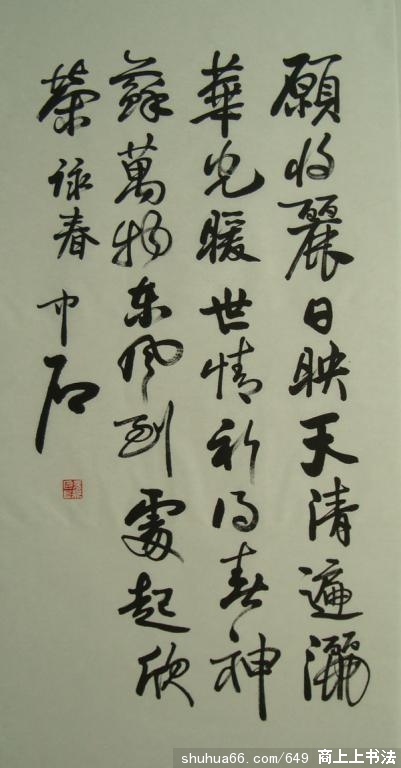 願将麗日映天清遍灑
華光暖世情祈得春神
蘇萬物東風到處起欣
榮 詠春 中石
shuhua66.com/649 商上上书法